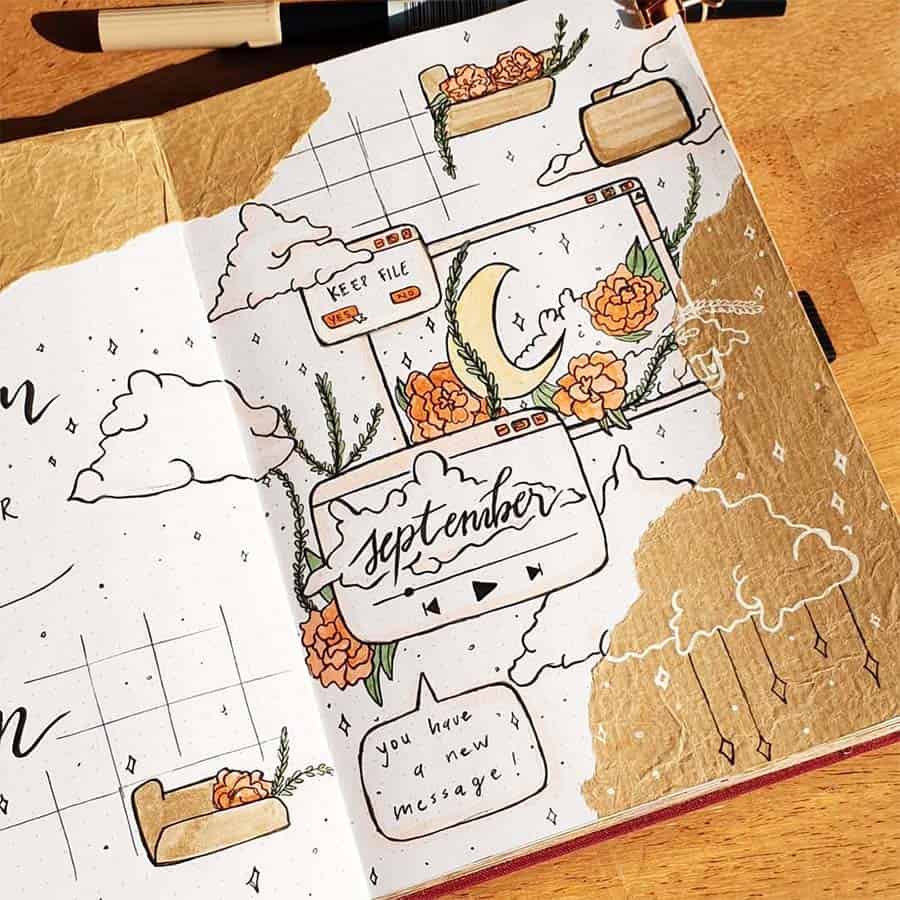 KEEP FILE
YES
NO
september
you have
a new
message!
R